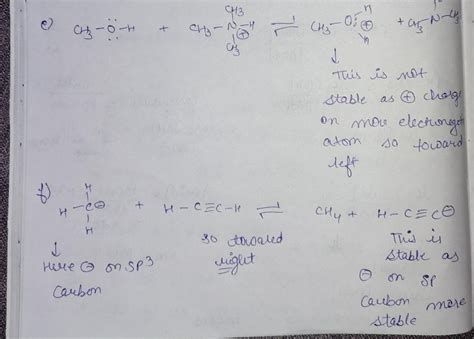 e) CH3-Ö-H + CH3-N-H ⇌ CH3-O-H + CH3-N-CH3
CH3
⊕
CH3
H
↓
This is not
stable as ⊕ charge
on more electronegat
atom so toward
left
f) H-C⊖ + H-C≡C-H ⇌ CH4 + H-C≡C⊖
H
H
↓
Here ⊖ on SP3
Carbon
so toward
right
This is
stable as
⊖ on SP
Carbon more
stable